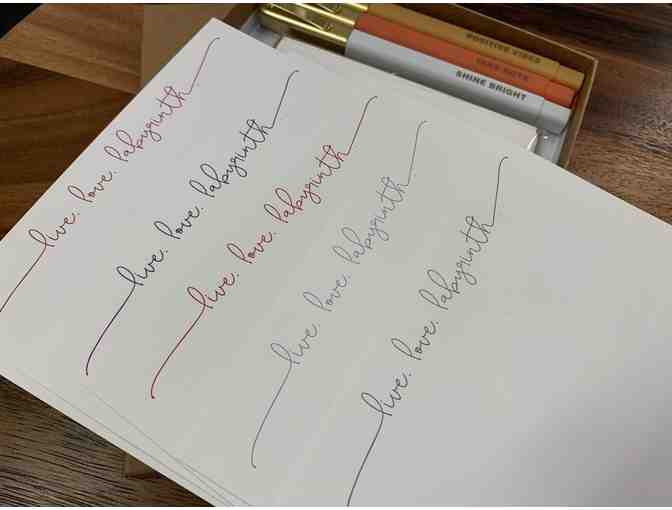 POSITIVE VIBES
TAKE NOTE
SHINE BRIGHT
live. love. labyrinth.
live. love. labyrinth.
live. love. labyrinth.
live. love. labyrinth.
live. love. labyrinth.